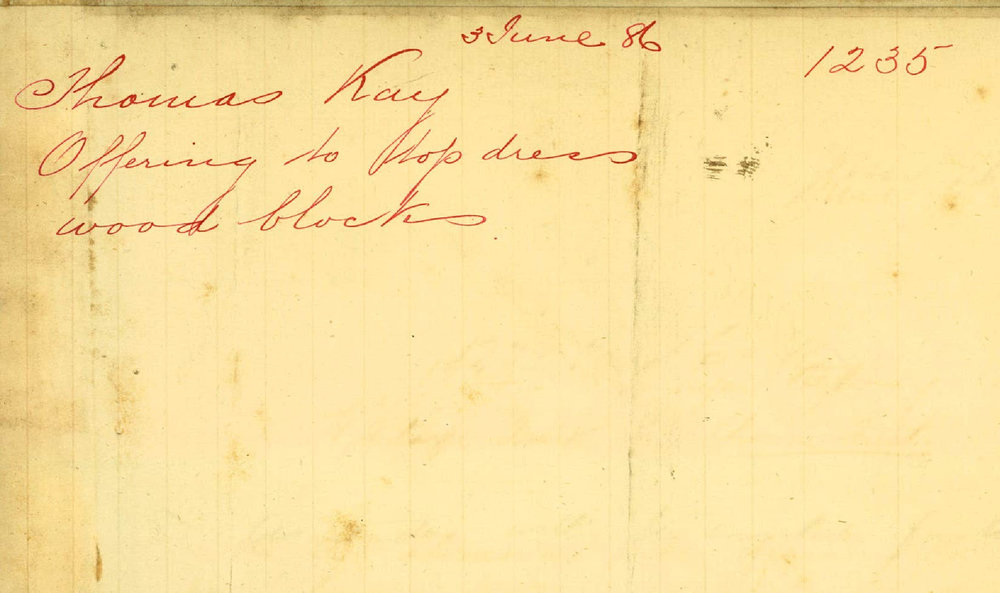 3 June 86
1235
Thomas Kay
Offering to top dress
wood blocks